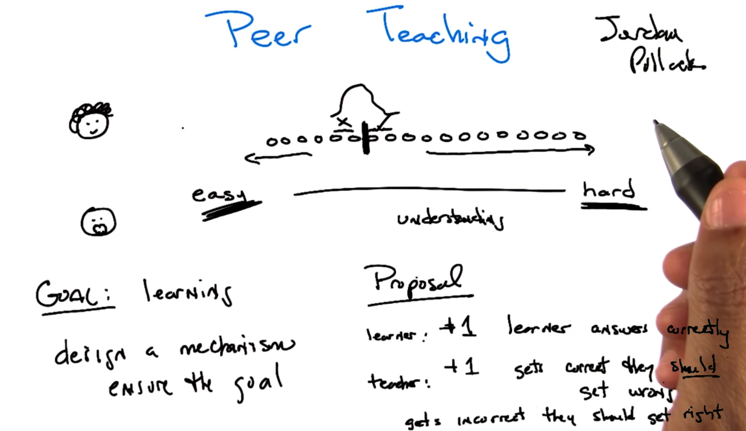 Peer Teaching
Jordan
Pollack
easy
hard
understanding
GOAL: learning
design a mechanism
ensure the goal
Proposal
learner: +1 learner answers correctly
teacher: +1 gets correct they should
get wrong
gets incorrect they should get right